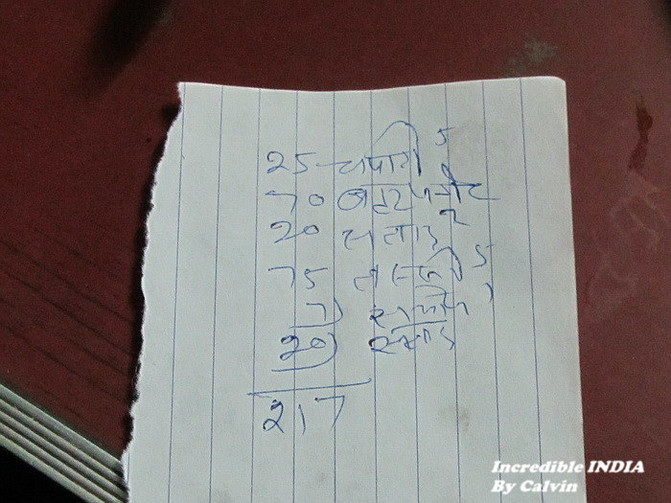 25 चपाती 5
70 बटर पनीर
20 सलाद 2
75 लस्सी 5
7
20
217
Incredible INDIA
By Calvin